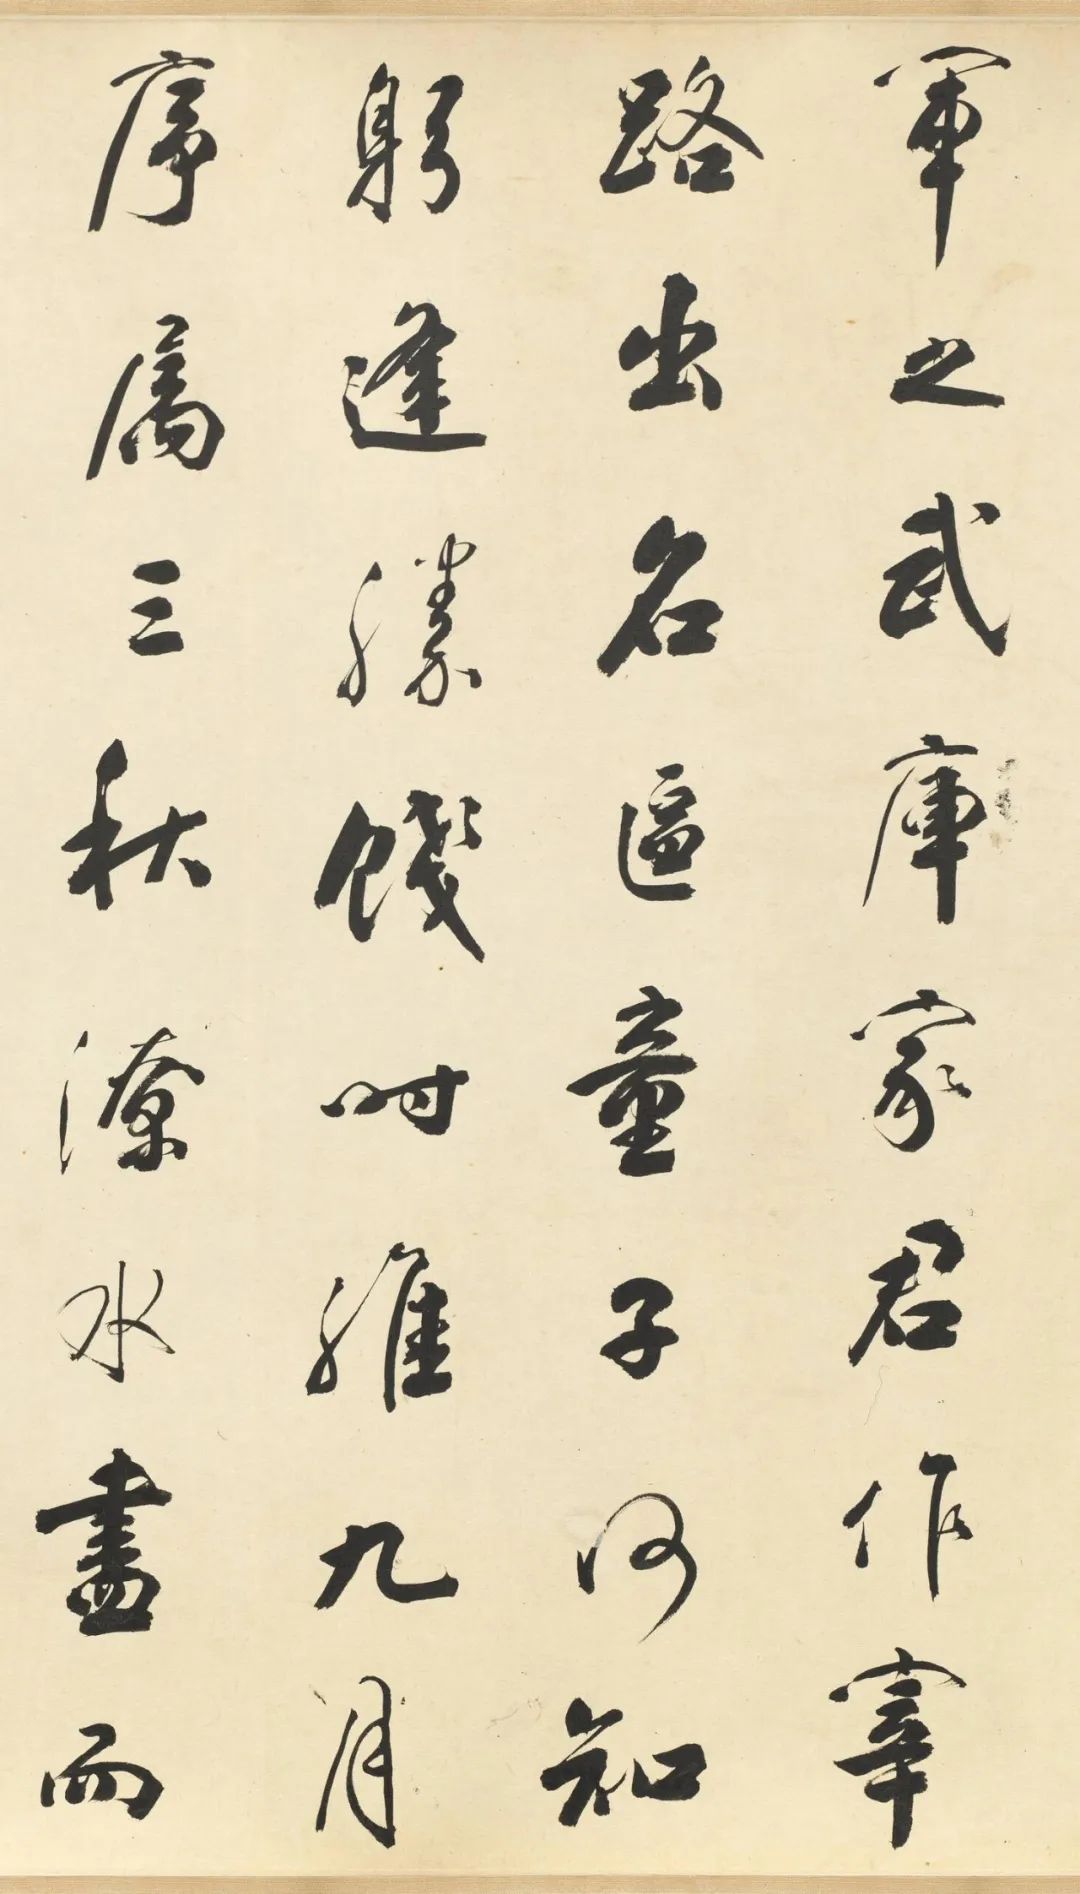 軍之武庫家君作宰
路出名區童子何知
躬逢勝餞時維九月
序屬三秋潦水盡而